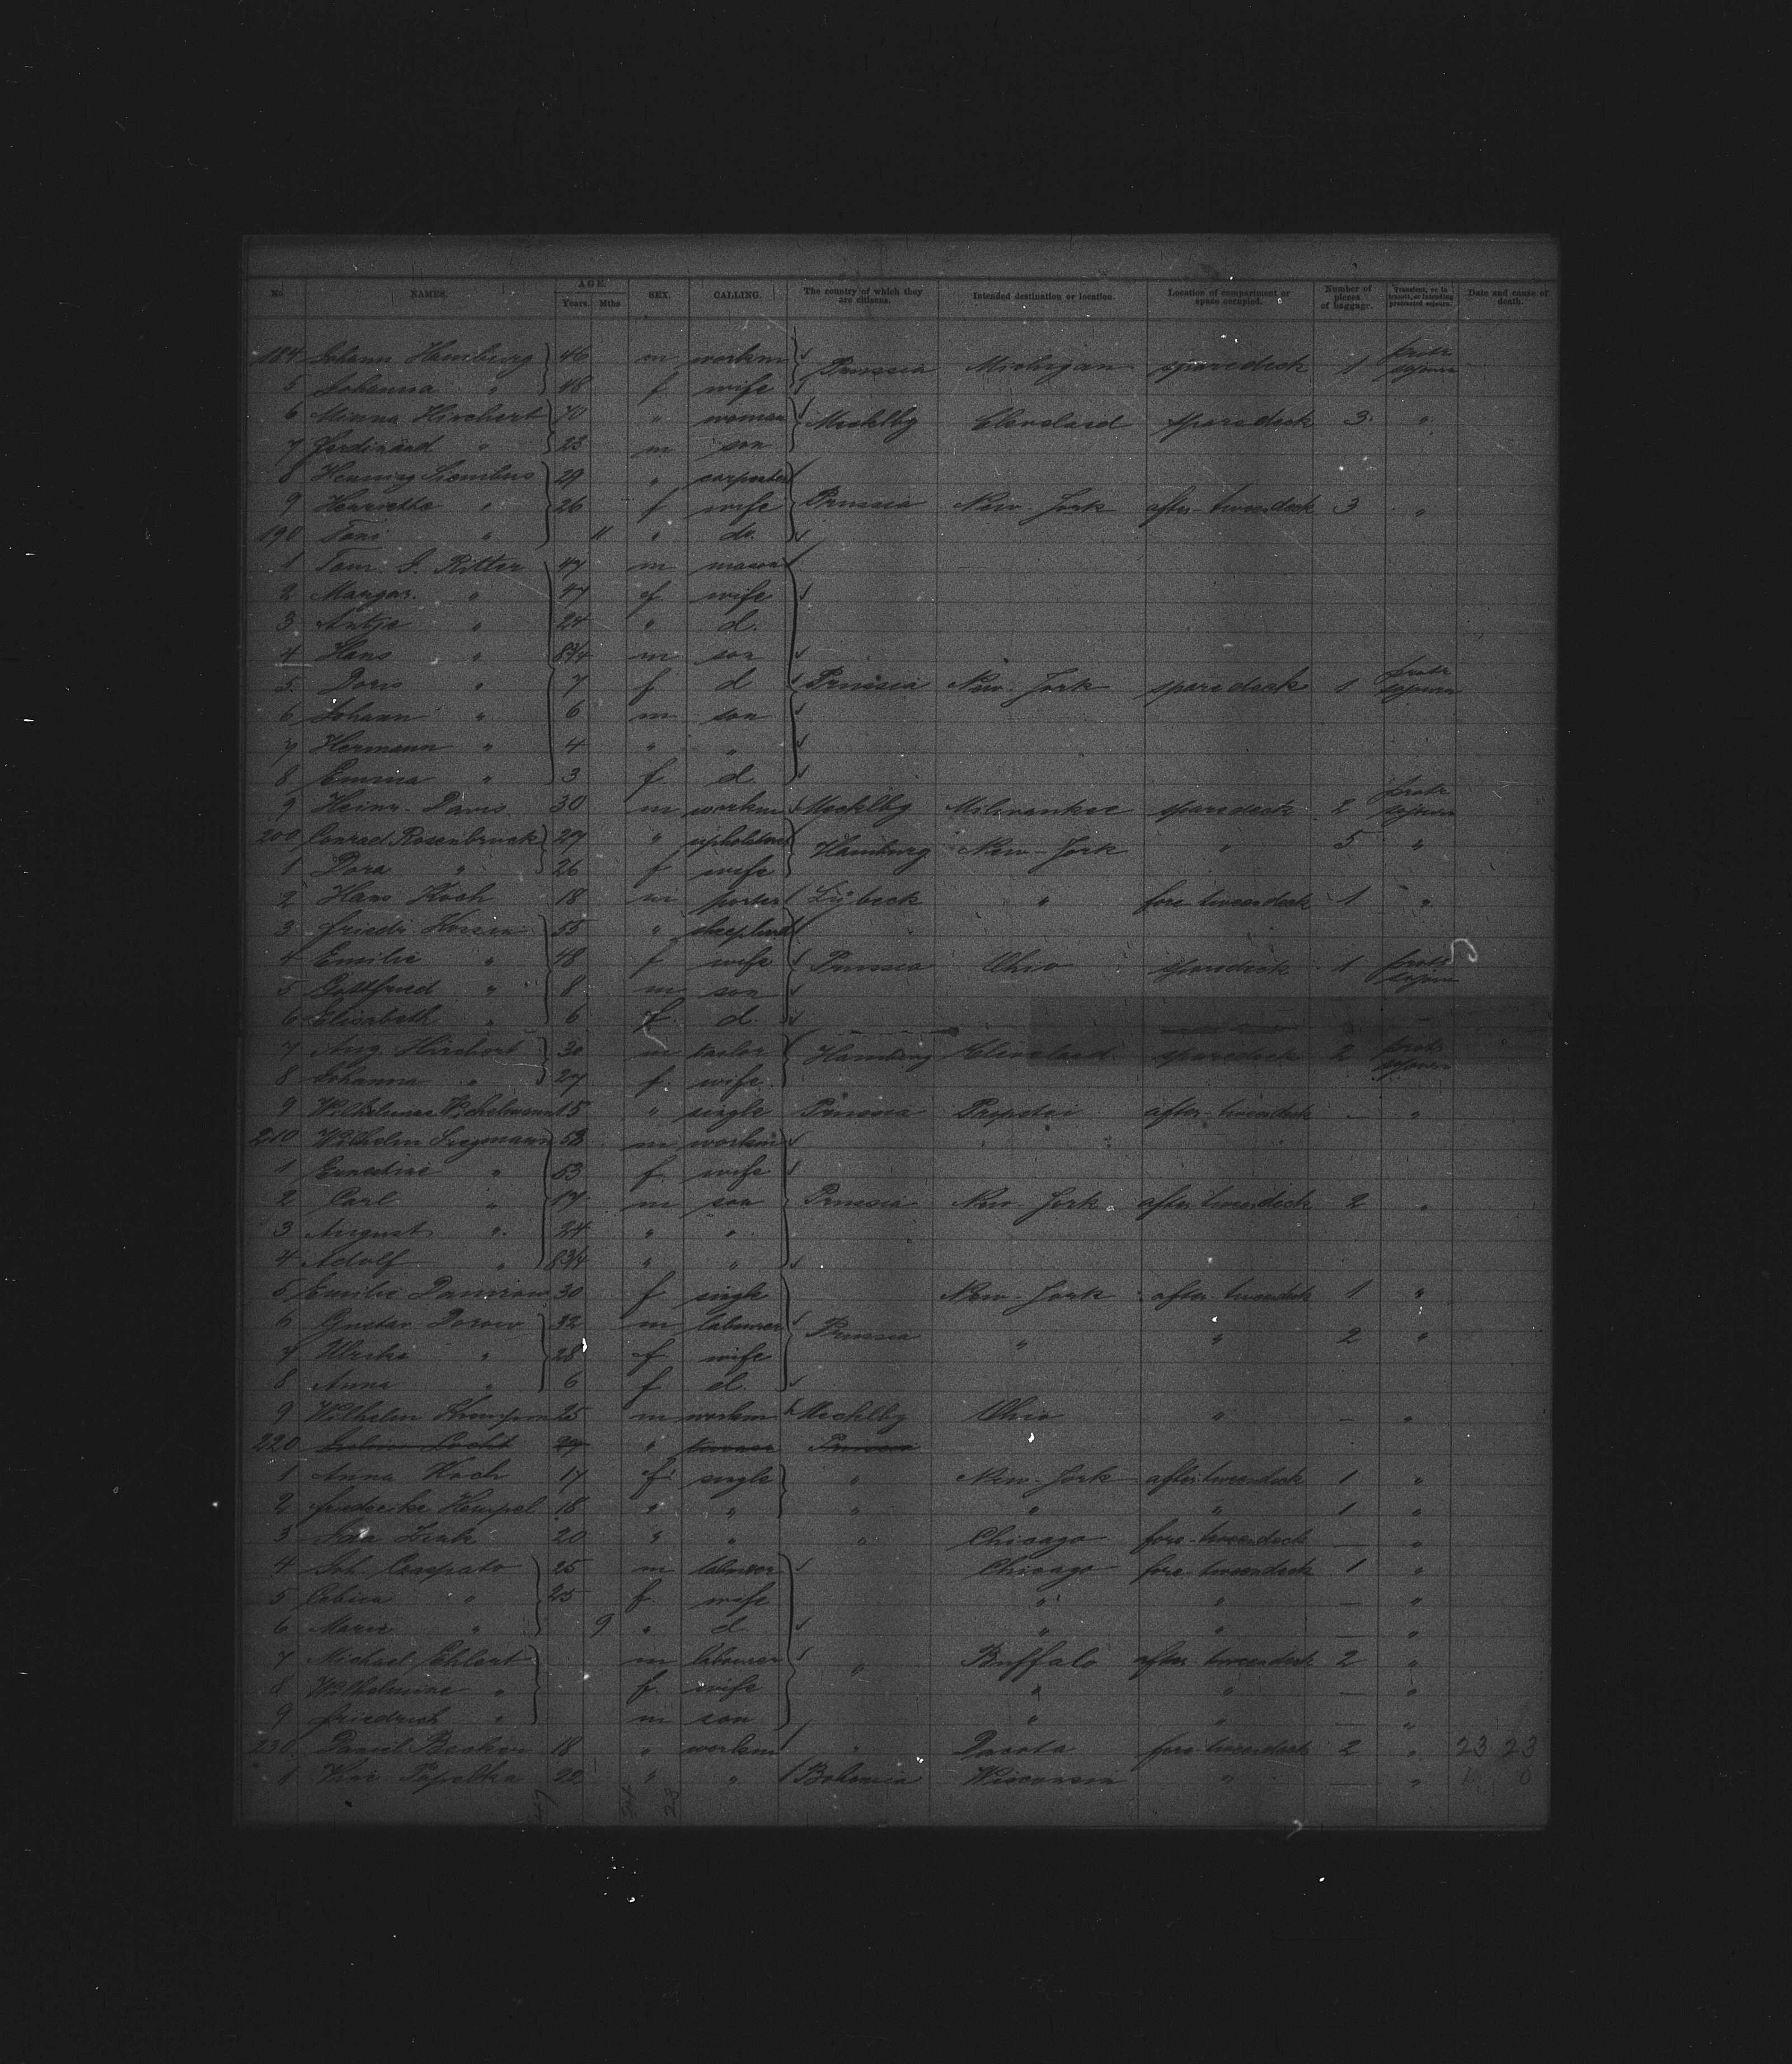 No. NAMES. AGE. Years. Mths SEX. CALLING. The country of which they are citizens. Intended destination or location. Location of compartment or space occupied. Number of pieces of baggage. Transient, or in transit, or intending protracted sojourn. Date and cause of death.
184 Johann Hamburg 46 m workm Prussia Michigan sparedeck 1 protr sojourn
5 Johanna " 48 f wife
6 Minna Hirchert 70 " woman Mecklbg Cleveland sparedeck 3 "
7 Ferdinand " 23 m son
8 Henning 29 " carpenter
9 Henriette " 26 f wife Prussia New-York after-tweendeck 3 "
190 Toni " 11 " do.
1 Tom. J. Ritter 47 m mason
2 Margar. " 47 f wife
3 Antje " 24 " d.
4 Hans " 8 3/4 m son
5 Doris " 7 f d Prussia New-York sparedeck 1 protr sojourn
6 Johann " 6 m son
7 Hermann " 4 " "
8 Emma " 3 f d.
9 Heinr. Davis 30 m workm Mecklbg Milwaukee sparedeck 2 protr sojourn
200 Conrad Rosenbruck 27 " upholsterer Hamburg New-York " 5 "
1 Dora " 26 f wife
2 Hans Koch 18 m porter Lübeck " fore tweendeck 1 "
3 Friedr. 55 " shepherd
4 Emilie " 48 f wife Prussia Ohio sparedeck 1 protr sojourn
5 Gottfried " 8 m son
6 Elisabeth " 6 f d.
7 Aug. Hirchert 30 m tailor Hamburg Cleveland sparedeck 2 protr sojourn
8 Johanna " 27 f wife
9 Wilhelmine 15 " single Prussia after-tweendeck — "
210 Wilhelm 58 m workm
1 Ernestine " 53 f wife
2 Carl " 17 m son Prussia New-York after tweendeck 2 "
3 August " 24 " "
4 Adolf " 8 3/4 " "
5 Emilie 30 f single New-York after tweendeck 1 "
6 Gustav 32 m labourer Prussia " " 2 "
7 Ulrike " 28 f wife
8 Anna " 6 f d.
9 Wilhelm 25 m workm Mecklbg Ohio " — "
220 " Prussia
1 Anna Koch 17 f single " New-York after tweendeck 1 "
2 Friederike Hempel 18 " " " " " 1 "
3 20 " " " Chicago fore-tweendeck — "
4 Joh. 25 m labourer Chicago fore-tweendeck 1 "
5 " 25 f wife " " — "
6 Marie " 9 " d " " — "
7 Michael Ehlert m labourer " Buffalo after tweendeck 2 "
8 Wilhelmine " f. wife " " — "
9 Friedrich " m son " " — "
230 Daniel Becker 18 " workm " Dacota fore-tweendeck 2 " 23 23
1 22 " " Bohemia Wisconsin " — " 0